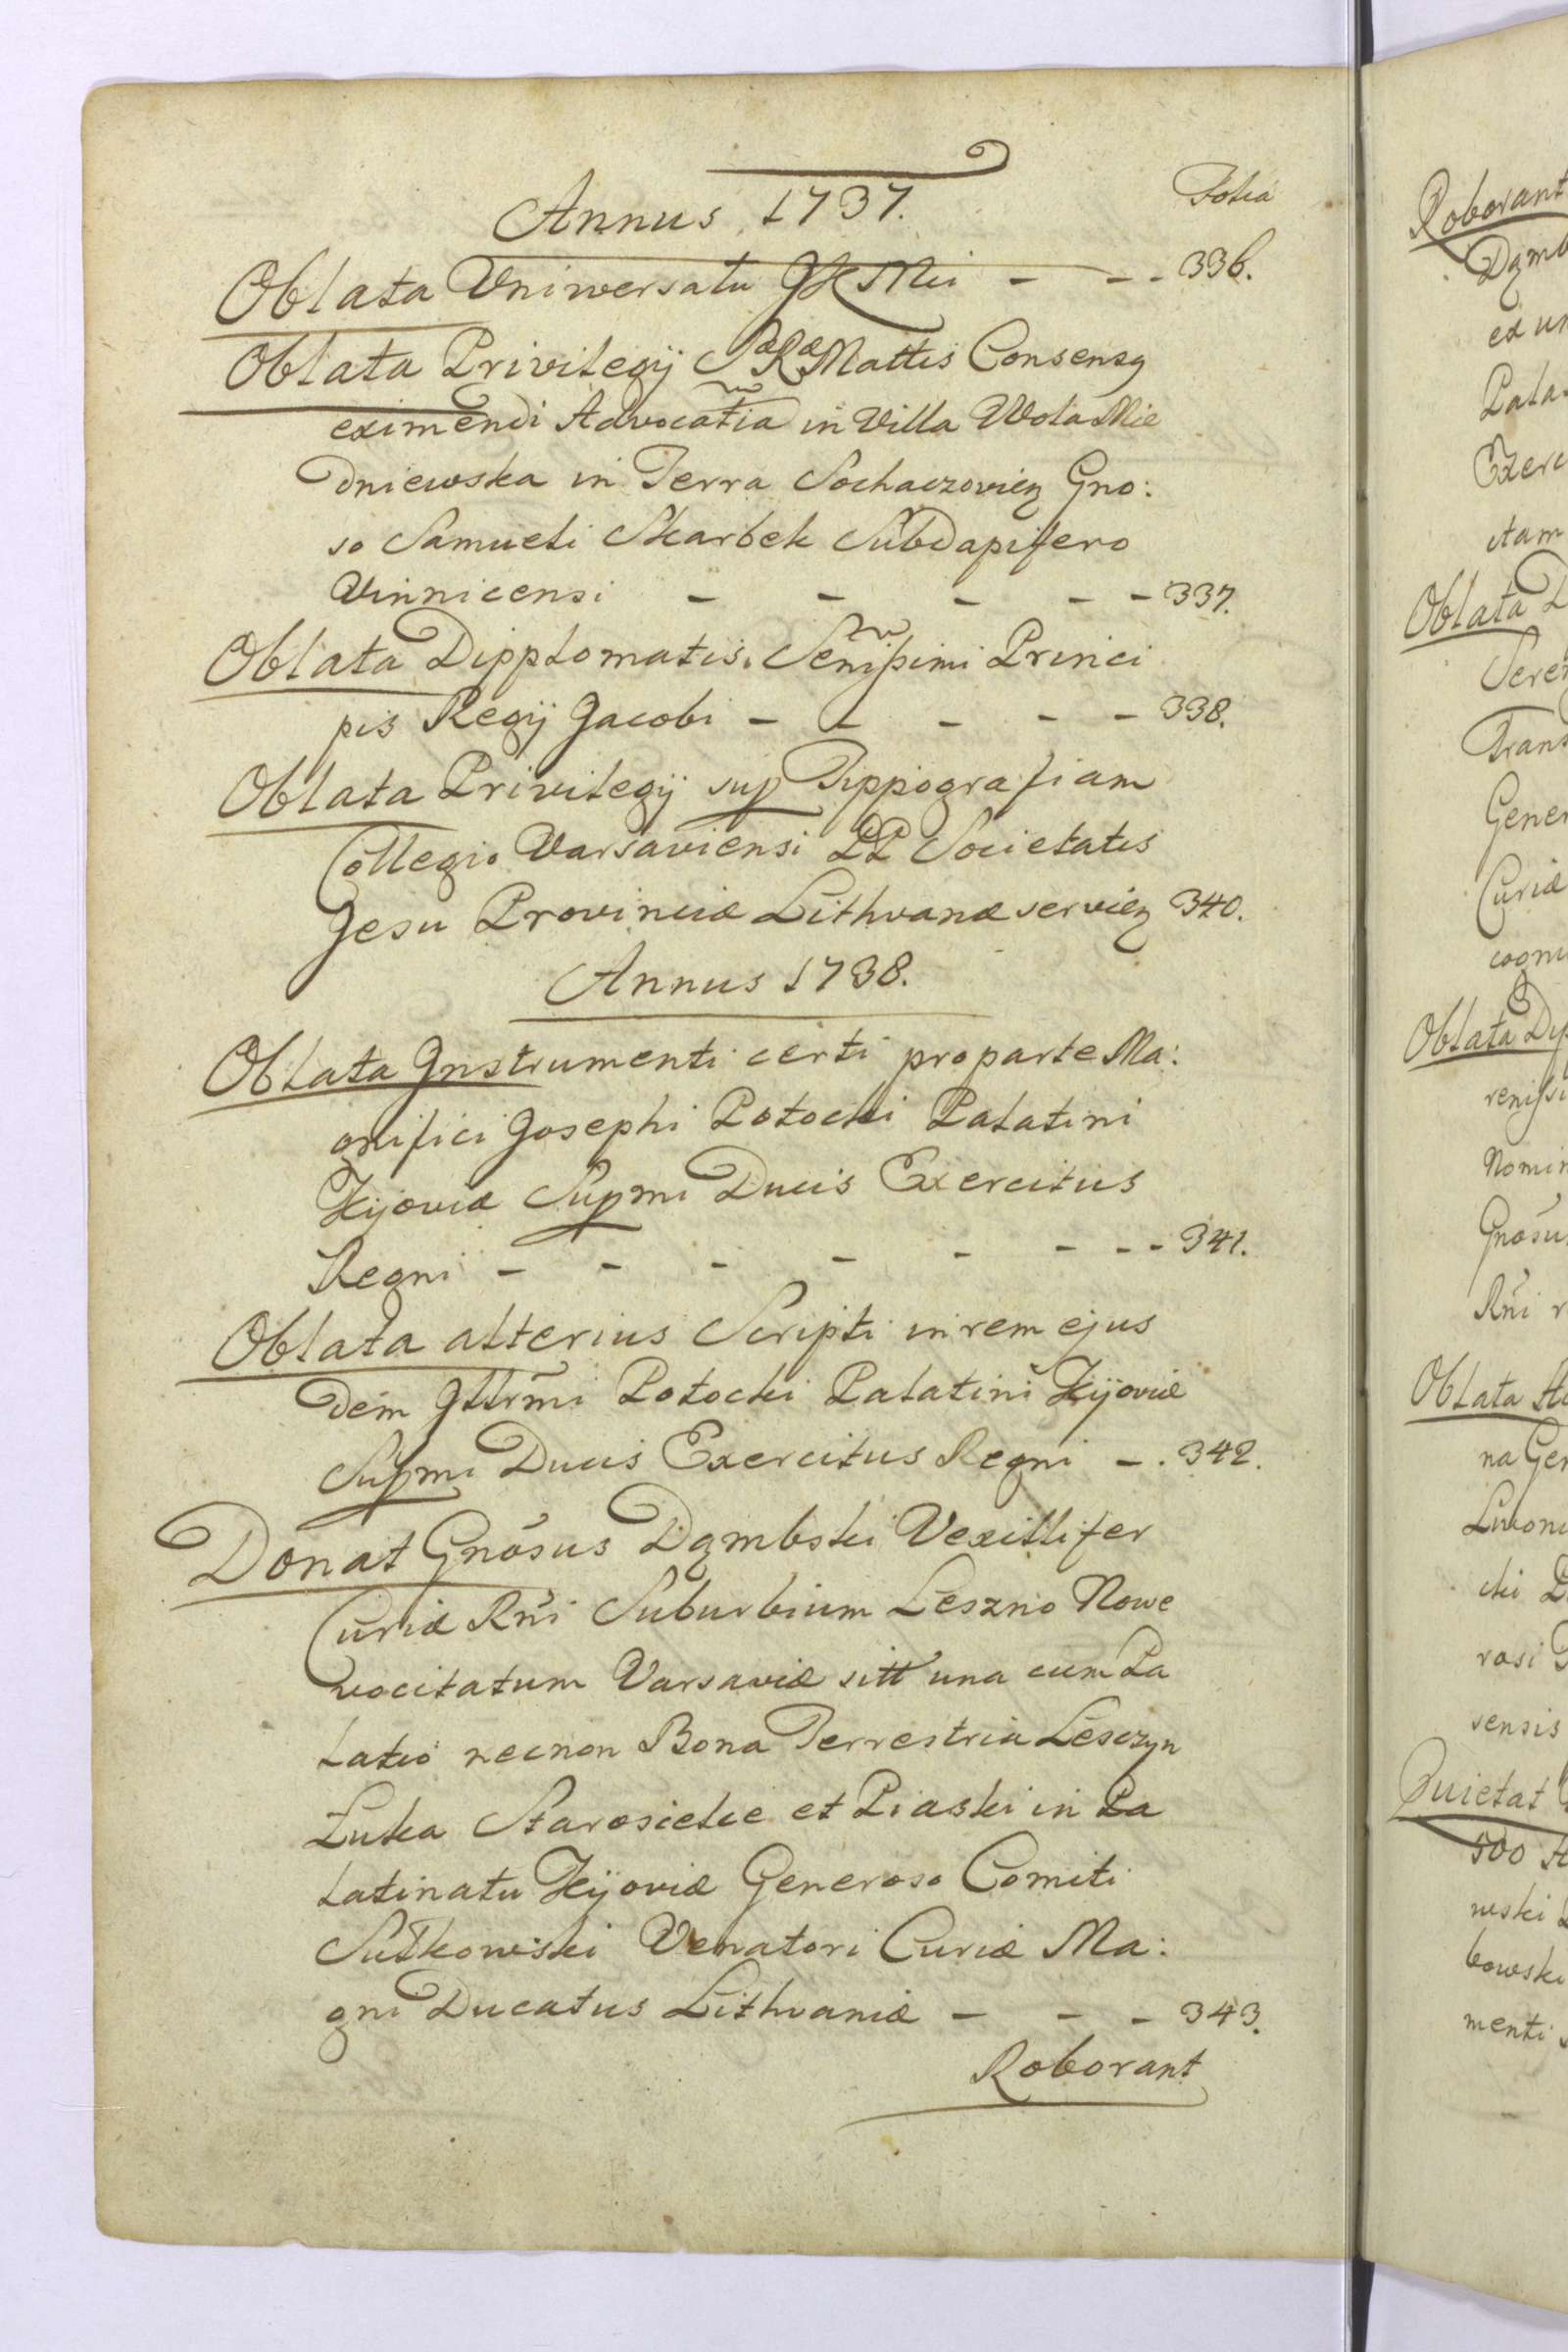 Annus 1737.
Folia
Oblata Uniwersału JKMci - - - 336.
Oblata Privilegij SæRæMattis Consensꝫ
eximendi Advocatia in Villa Wola Mie
dniewska in Terra Sochaczovieꝫ Gno:
so Samueli Skarbek Subdapifero
Vinnicensi - - - - - 337.
Oblata Dipplomatis. Seniſsimi Princi
pis Regij Jacobi - - - - - 338.
Oblata Privilegij sup Tippografiam
Collegio Varsaviensi PP Societatis
Jesu Provinciæ Lithvanæ servieꝫ 340.
Annus 1738.
Oblata Instrumenti certi pro parte Ma:
gnifici Josephi Potocki Palatini
Kijoviæ Supmi Ducis Exercitus
Regni - - - - - - - - 341.
Oblata alterius Scripti in rem ejus
dem Illrmi Potocki Palatini Kijoviæ
Supmi Ducis Exercitus Regni - . 342.
Donat Gnosus Dąmbski Vexillifer
Curiæ Rni Suburbium Leszno Nowe
vocitatum Varsaviæ sitt una cum Pa
latio necnon Bona Terrestria Lesczyn
Łuka Starosielce et Piaski in Pa
latinatu Kijoviæ Generoso Comiti
Sułkowski Venatori Curiæ Ma:
gni Ducatus Lithvaniæ - - - 343.
Roborant
Roborant
Dąmb
ex
Pala
Exerc
itam
Oblata
Seren
Trans
Gener
Curiæ
cogn
Oblata Dip
reniſsi
Nomin
Gnosu
Rni
Oblata
na Gen
cki
rosi
sensis
Quietat
500
wski
bowski
menti